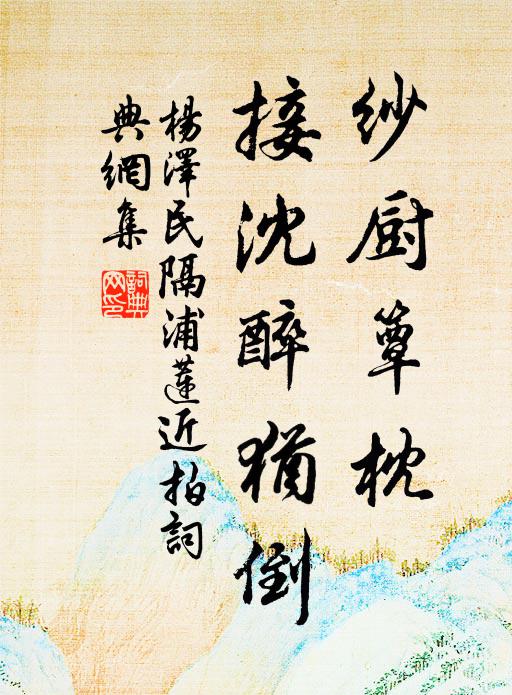 纱厨簟枕
接沈醉犹倒
楊澤民隔浦蓮近拍詞
典網集
詞典网印